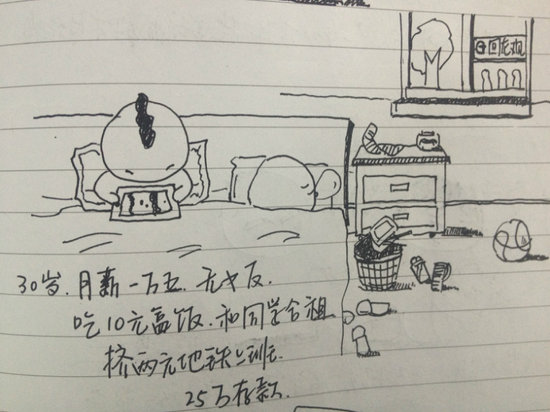 回龙观
30岁.月薪一万五.无女友
吃10元盒饭.和同学合租
挤两元地铁上班.
25万存款.